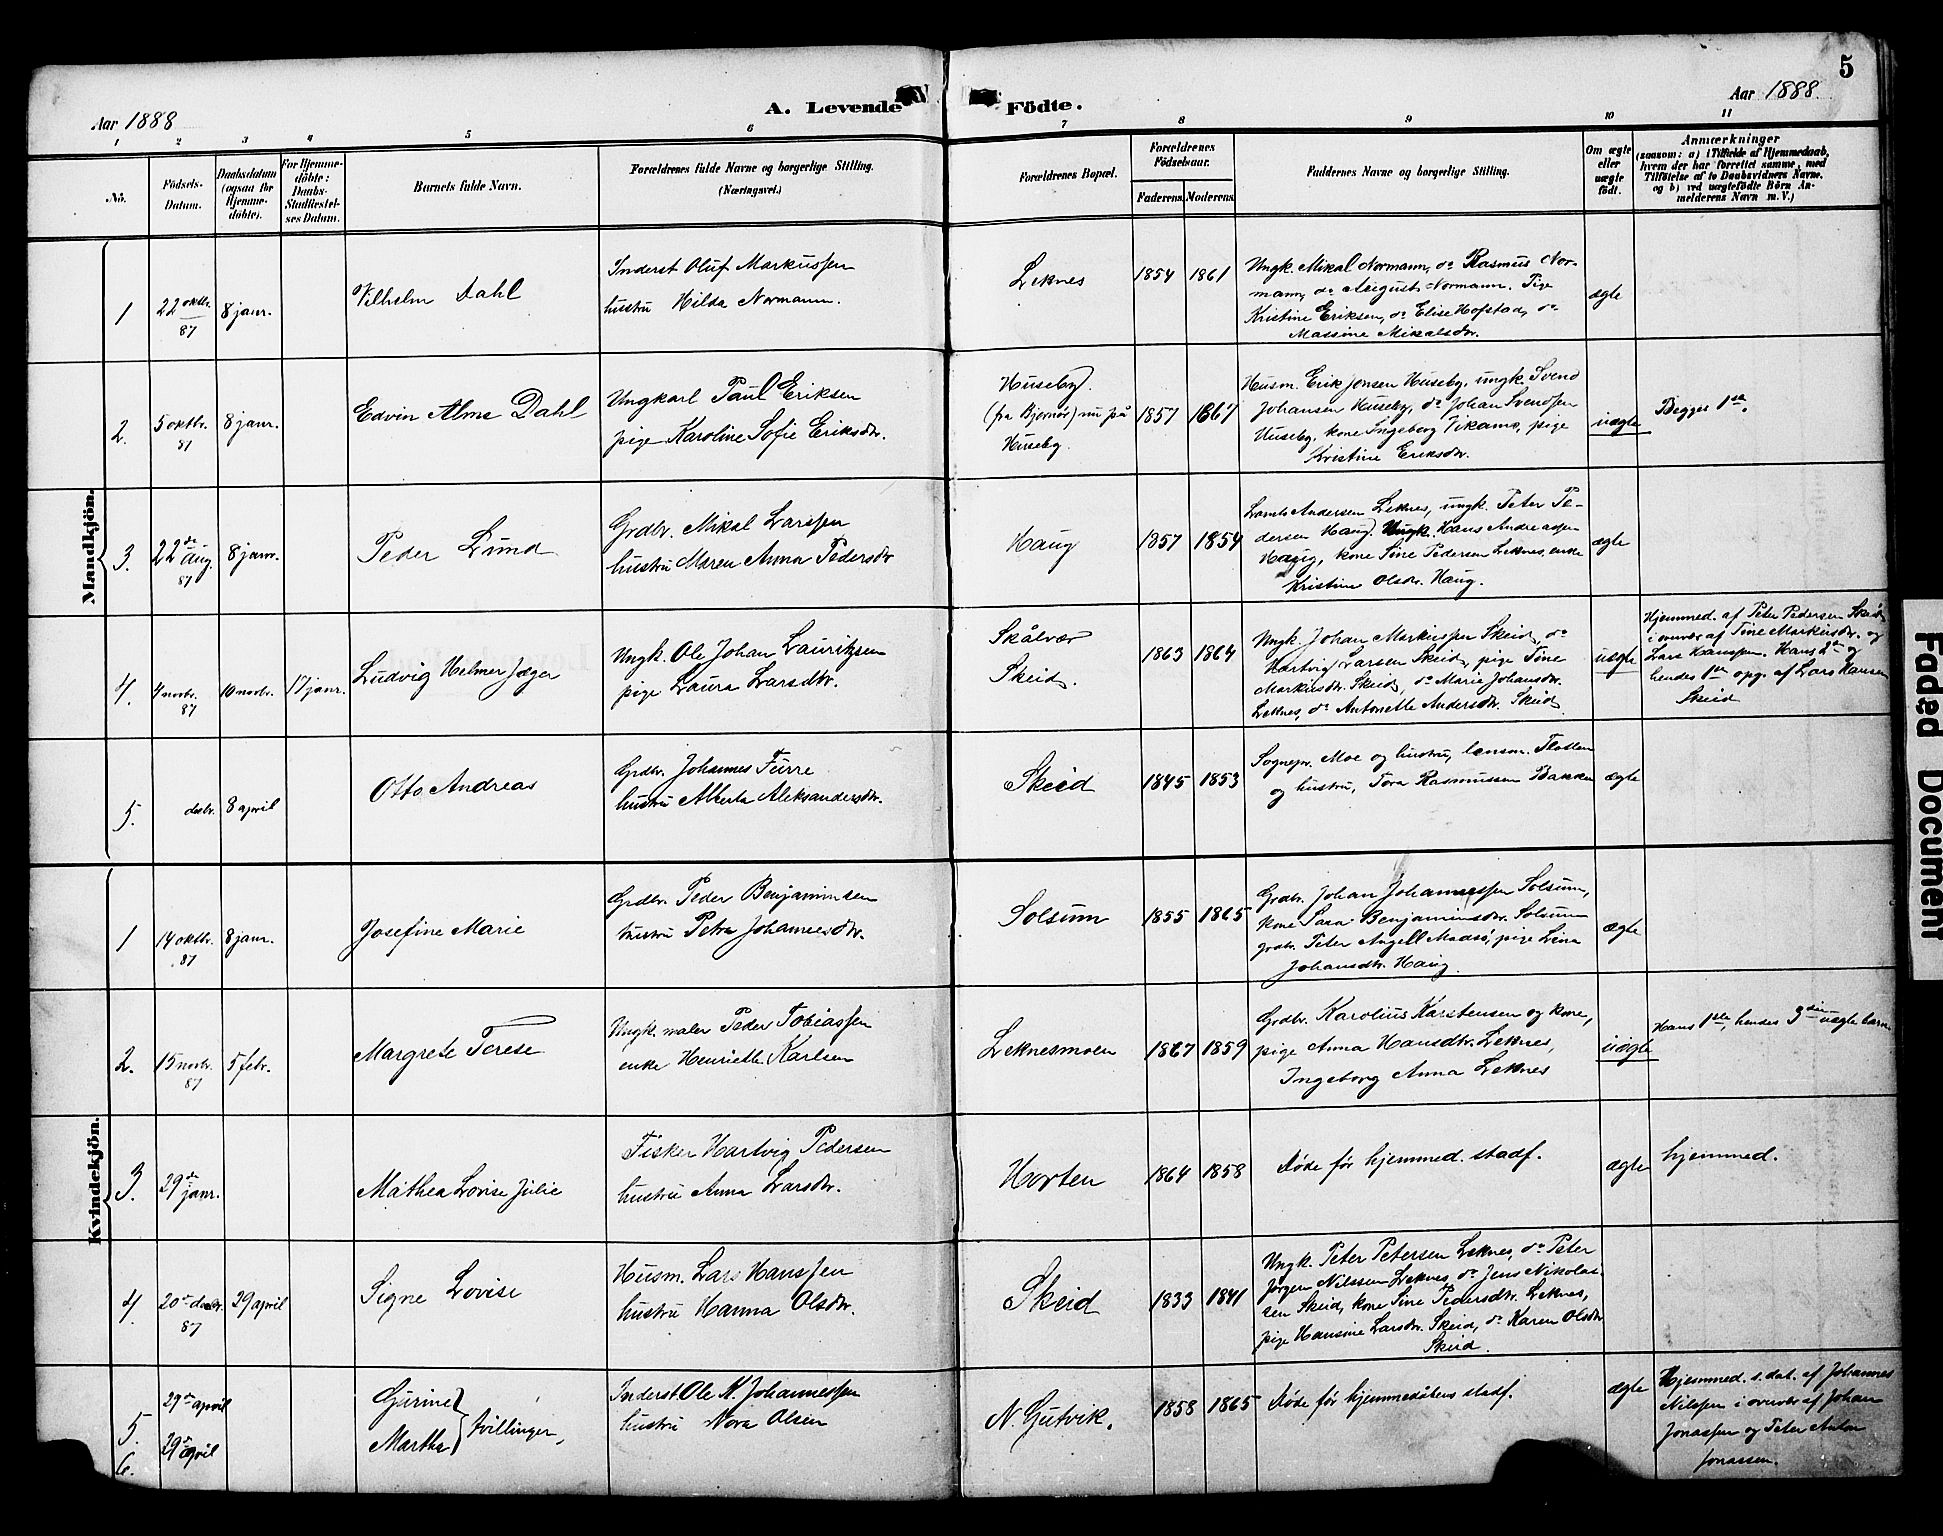 5
Aar 1888
A. Levende
Födte.
Aar 1888
1 2 3 4 5 6 7 8 9 10 11
No.
Födsels-
Datum.
Daabsdatum
(ogsaa for
Hjemme-
döbte).
For Hjemme-
döbte:
Daabs-
Stadfæstel-
ses Datum.
Barnets fulde Navn.
Forældrenes fulde Navne og borgerlige Stilling.
(Næringsvei.)
Forældrenes Bopæl.
Forældrenes
Födselsaar.
Faderens. Moderens.
Faddernes Navne og borgerlige Stilling.
Om ægte
eller
uægte
født.
Anmærkninger
(saasom: a) i Tilfælde af Hjemmedaab,
hvem der har forrettet samme, med
Tilföielse af to Daabsvidners Navne,
og b) ved uægtefödte Börn An-
melderens Navn m. V.)
Mandkjön.
1
22 oktbr.
87
8 janr.
Vilhelm Dahl
Inderst Oluf Markussen
hustru Hilda Normann.
Leknes
1854
1861
Ungk. Mikal Normann, do Rasmus Nor-
mann, do August Normann. Pige
Kristine Eriksen, do Elise Hofstad, do
Massine Mikalsdtr.
ægte
2.
5 oktbr.
87
8 janr.
Edvin Alme Dahl
Ungkarl Paul Eriksen
pige Karoline Sofie Eriksdtr.
Huseby
(fra Bjørnør) nu på
Huseby.
1857
1867
Husm. Erik Jensen Huseby, ungk. Svend
Johansen Huseby, do Johan Svendsen
Huseby, kone Ingeborg, pige
Kristine Eriksdtr.
uægte
Begges 1ste.
3.
22de aug.
87
8 janr.
Peder Lund
Grdbr. Mikal Larssen
hustru Maren Anna Pedersdtr
Haug
1857
1854
Andersen Leknes, ungk. Peter Pe-
dersen Haug, Hans Andreassen
Haug, kone Sine Pedersen Leknes, enke
Kristine Olsdtr. Haug.
ægte
4.
4 novbr.
87
10 novbr.
17 janr.
Ludvig Helmer Jæger
Ungk. Ole Johan Lauritzsen
pige Laura Larsdtr.
Skålvær
Skeid.
1863
1864
Ungk. Johan Markussen Skeid, do
Hartvig Larsen Skeid, pige Tine
Markusdtr. Skeid, do Marie Johansdtr.
Leknes, do Antonette Andersdtr. Skeid
uægte
Hjemmed. af Peter Pedersen Skeid
i overvær af Tine Markusdtr. og
Lars Hanssen. Hans 2det og
hendes 1ste opg. af Lars Hansen
Skeid
5.
desbr.
8 april
Otto Andreas
Grdbr. Johannes Furre
hustru Alberta Aleksandersdtr.
Skeid
1845
1853
Sognepr. Moe og hustru, lensm. Flotten
og hustru, Tora Rasmussen Bakken
ægte
Kvindekjön.
1
14 oktbr.
87
8 janr.
Josefine Marie
Grdbr. Peder Benjaminsen
hustru Petra Johannesdtr.
Solsum
1855
1865
Grdbr. Johan Johannessen Solsum,
kone Sara Benjaminsdtr. Solsum
grdbr. Peter Angell Madsø, pige Lina
Johansdtr. Haug.
ægte
2.
15 novbr.
87
5 febr.
Margrete Terese
Ungk. maler Peder Tobiassen
enke Henriette Karlsen
Leknesmoen
1867
1859
Grdbr. Karolius Karstensen og kone,
pige Anna Hansdtr. Leknes,
Ingeborg Anna Leknes
uægte
Hans 1ste, hendes 3die uægte barn
3.
29de janr.
Mathea Lovise Julie
Fisker Hartvig Pedersen
hustru Anna Larsdtr.
Horten
1864
1858
Døde før hjemmed. stadf.
ægte
hjemmed.
4.
20de desbr.
87
29 april
Signe Lovise
Husm. Lars Hanssen
hustru Hanna Olsdtr.
Skeid
1833
1841
Ungk. Peter Petersen Leknes, do Peter
Jørgen Nilssen Leknes, do Jens Nikolai-
sen Skeid, kone Sine Pedersdtr. Leknes,
pige Hansine Larsdtr. Skeid, do Karen Olsdtr
Skeid.
5.
6.
29de april
29de april
Gurine
Martha
tvillinger,
Inderst Ole N. Johannessen
hustru Nora Olsen
N. Gutvik.
1858
1865
Døde før hjemmedåbens stadf.
ægte
Hjemmed. s. dat. af Johannes
Nilssen i overvær af Johan
Jonassen og Peter Anton
Jonassen.
Faded Document